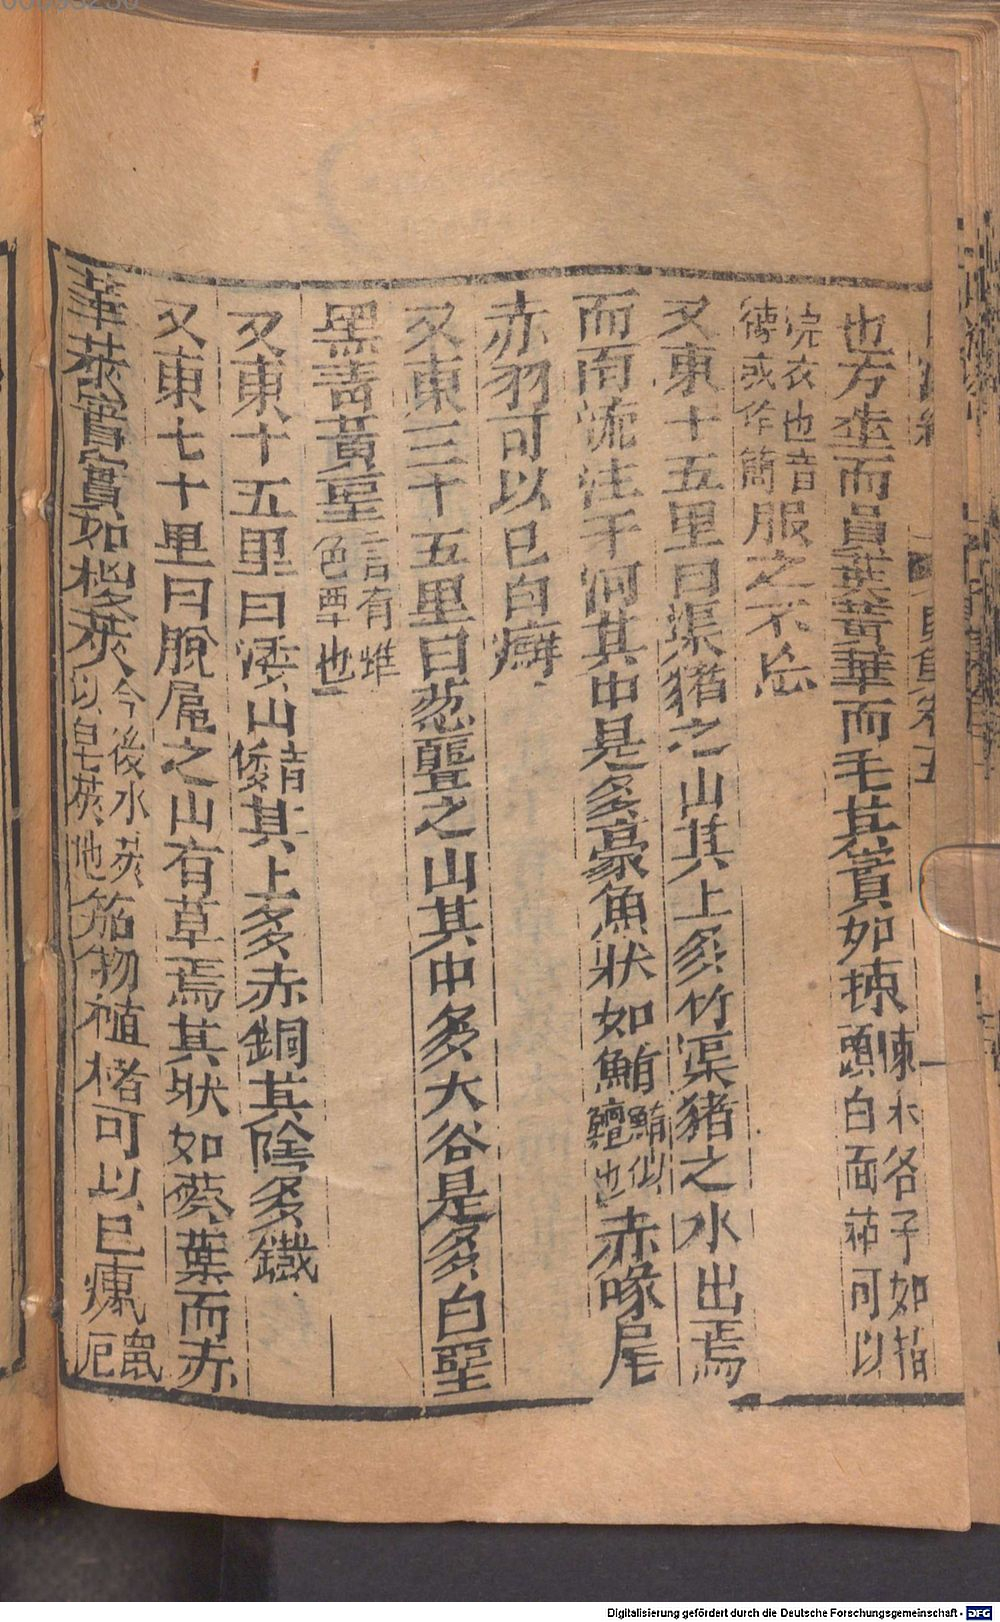 也方莖而員葉黃華而毛其實如揀揀木名子如指頭白而粘可以
浣衣也音
傳或作簡服之不忘
又東十五里曰渠豬之山其上多竹渠豬之水出焉
而南流注于河其中是多豪魚狀如鮪鮪似鱣也赤喙尾
赤羽可以已白癬
又東三十五里曰葱聾之山其中多大谷是多白堊
黑青黃堊言有雜色堊也
又東十五里曰涹山音倭其上多赤銅其陰多鐵
又東七十里曰脫扈之山有草焉其狀如葵葉而赤
華莢實實如椶莢今後水莢以皂莢地名物植楮可以已癙
Digitalisierung gefördert durch die Deutsche Forschungsgemeinschaft - DFG